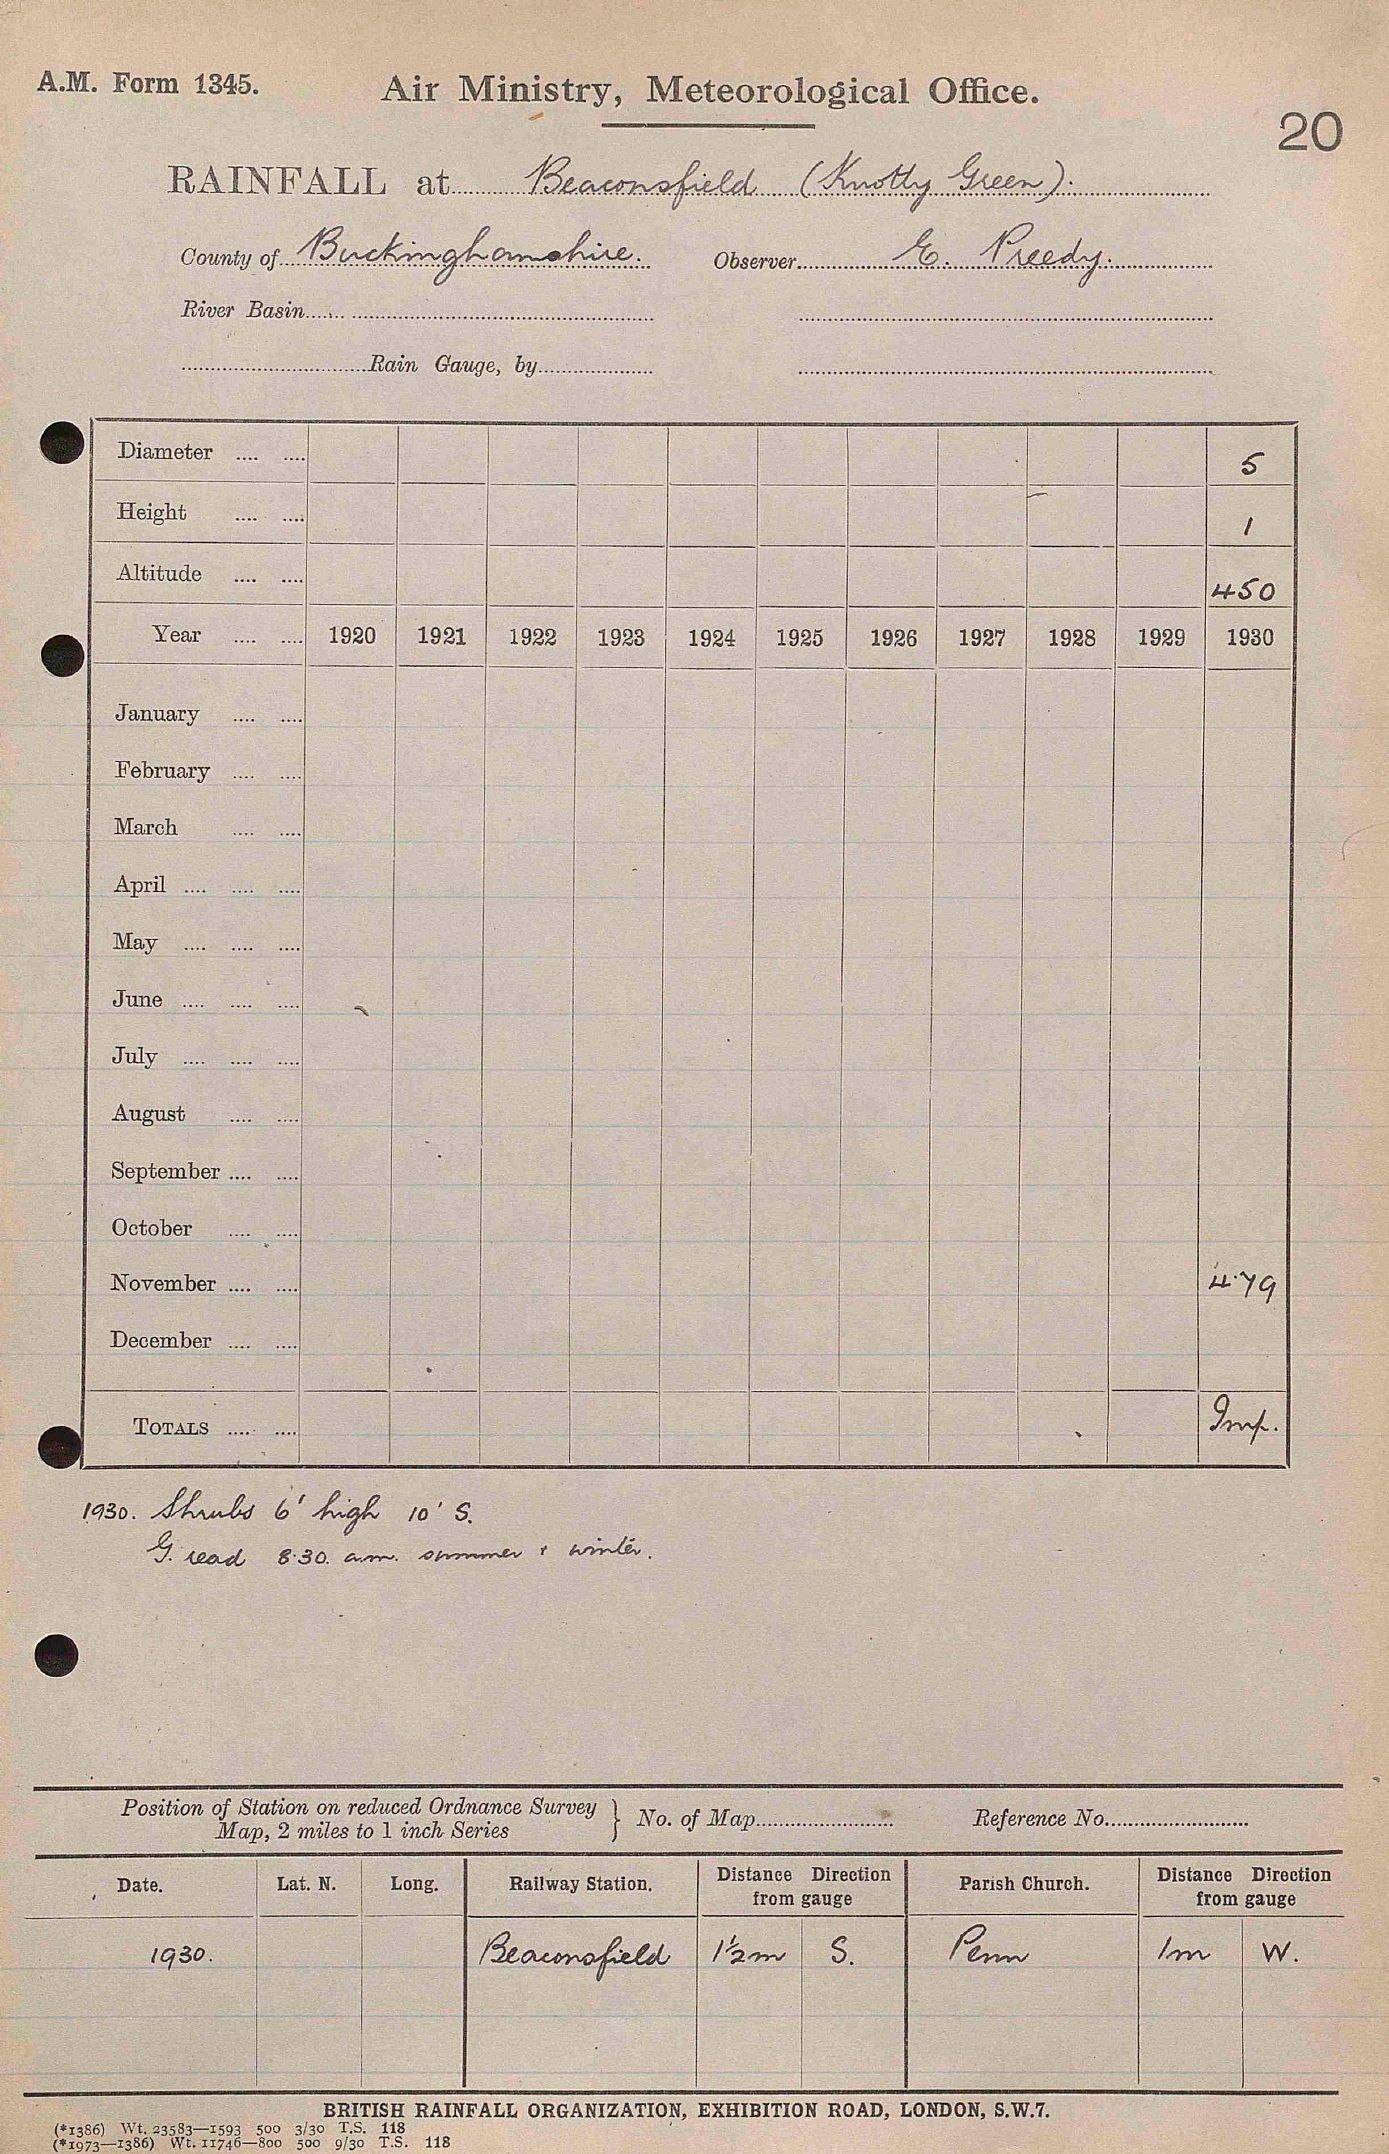 A.M. Form 1345. Air Ministry, Meteorological Office.
20
RAINFALL at Beaconsfield (Knotty Green).
County of Buckinghamshire. Observer E. Preedy.
River Basin
Rain Gauge, by
Diameter 5
Height 1
Altitude 450
Year 1920 1921 1922 1923 1924 1925 1926 1927 1928 1929 1930
January
February
March
April
May
June
July
August
September
October
November 4·79
December
TOTALS Imp.
1930. Shrubs 6' high 10' S.
G. read 8·30. a.m. summer & winter.
Position of Station on reduced Ordnance Survey
Map, 2 miles to 1 inch Series } No. of Map Reference No.
Date. Lat. N. Long. Railway Station. Distance Direction from gauge Parish Church. Distance Direction from gauge
1930. Beaconsfield 1½m S. Penn 1m W.
BRITISH RAINFALL ORGANIZATION, EXHIBITION ROAD, LONDON, S.W.7.
(*1386) Wt. 23583—1593 500 3/30 T.S. 118
(*1973—1386) Wt. 11746—800 500 9/30 T.S. 118